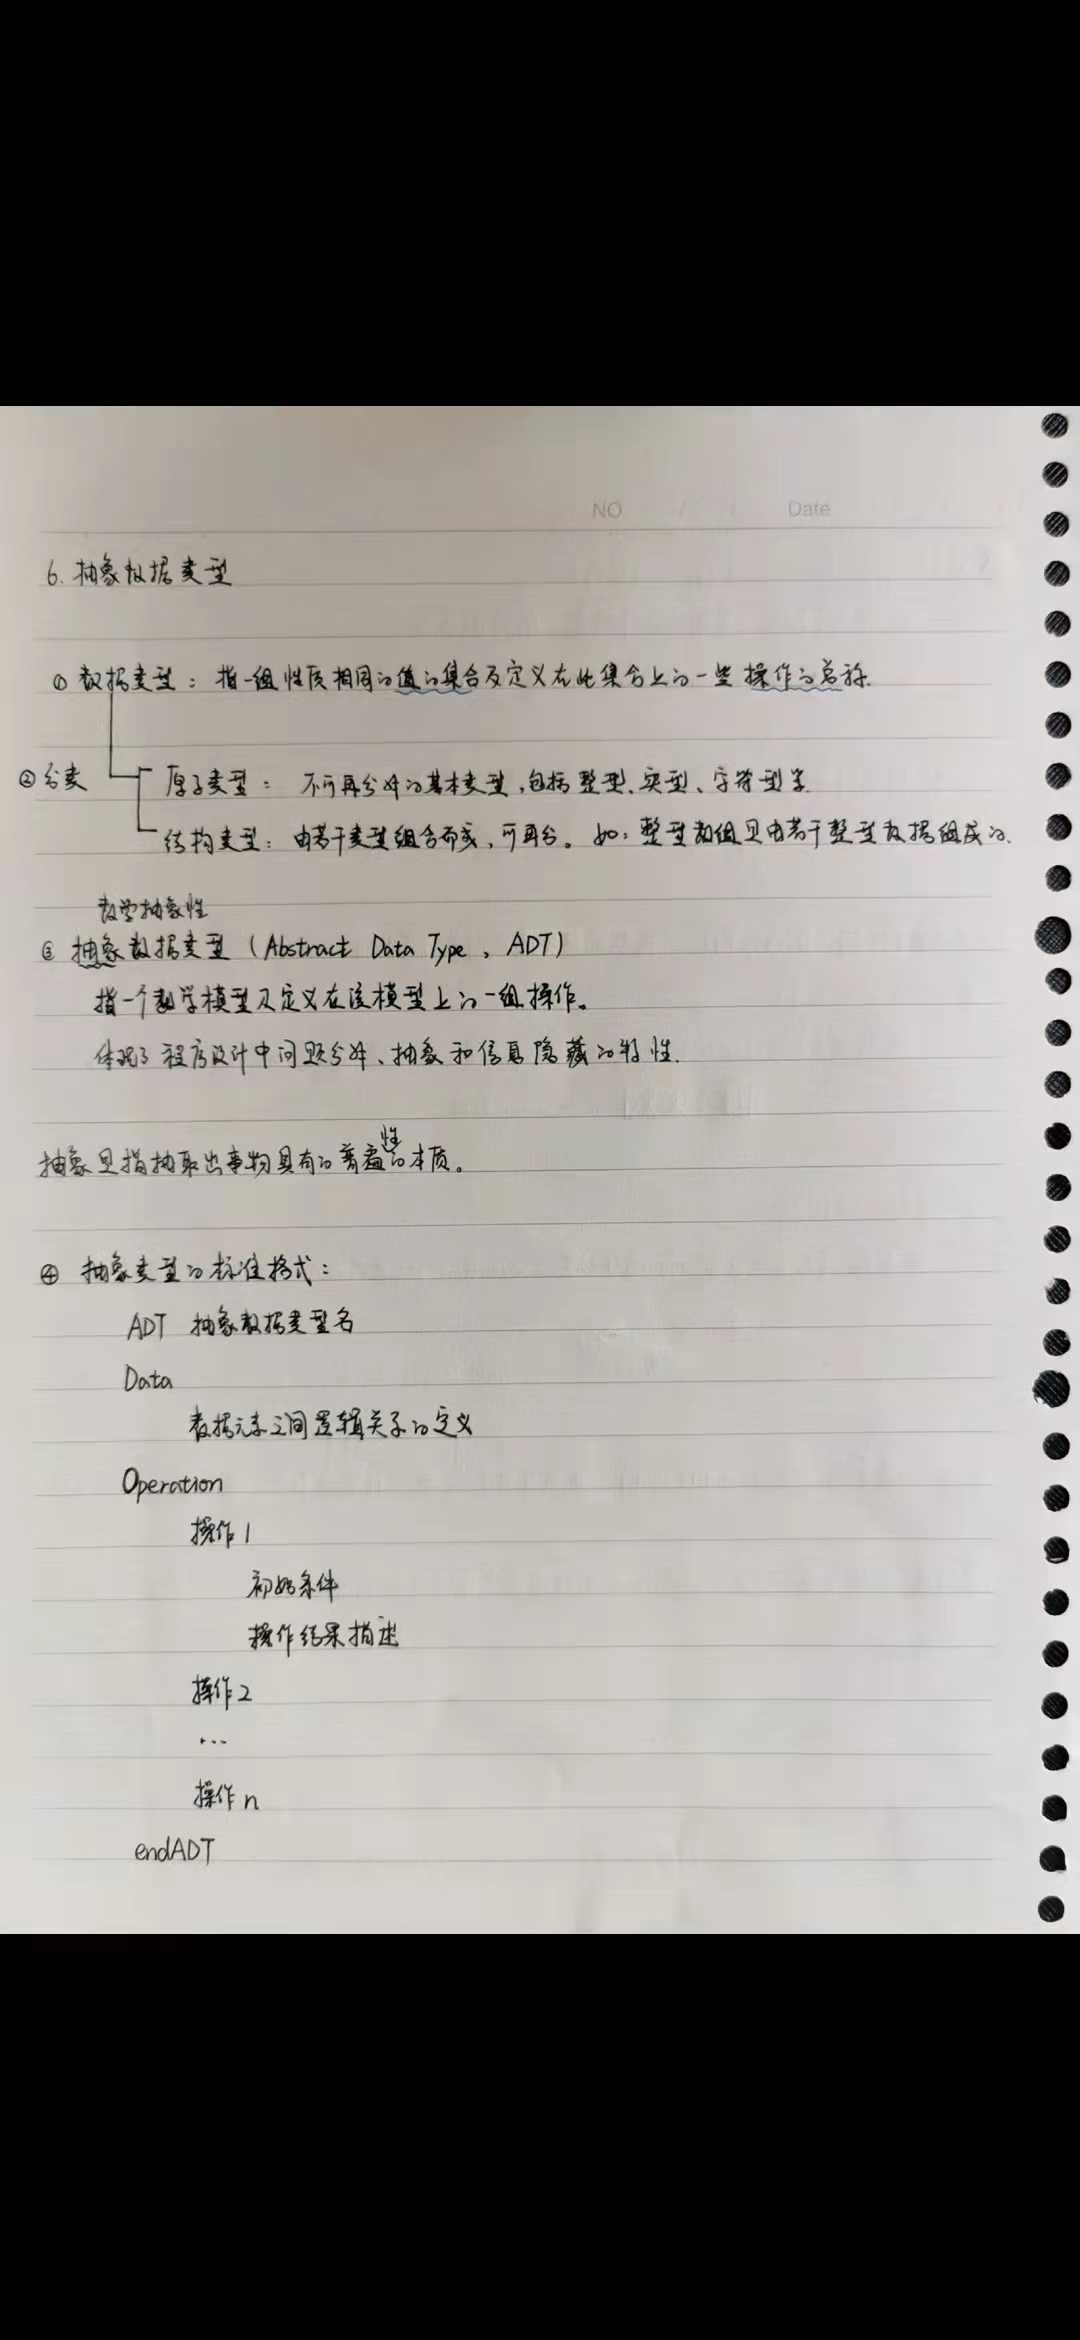 NO.
Date
6. 抽象数据类型
① 数据类型：指一组性质相同的值的集合及定义在此集合上的一些操作的总称.
② 分类
原子类型：不可再分解的基本类型,包括整型、实型、字符型等
结构类型：由若干类型组合而成,可再分。如：整型数组是由若干整型数据组成的.
数学抽象性
③ 抽象数据类型（Abstract Data Type，ADT）
指一个数学模型及定义在该模型上的一组操作。
体现了程序设计中问题分解、抽象和信息隐藏的特性.
抽象是指抽取出事物具有的普遍性的本质。
④ 抽象类型的标准格式：
ADT 抽象数据类型名
Data
数据元素之间逻辑关系的定义
Operation
操作1
初始条件
操作结果描述
操作2
...
操作n
endADT